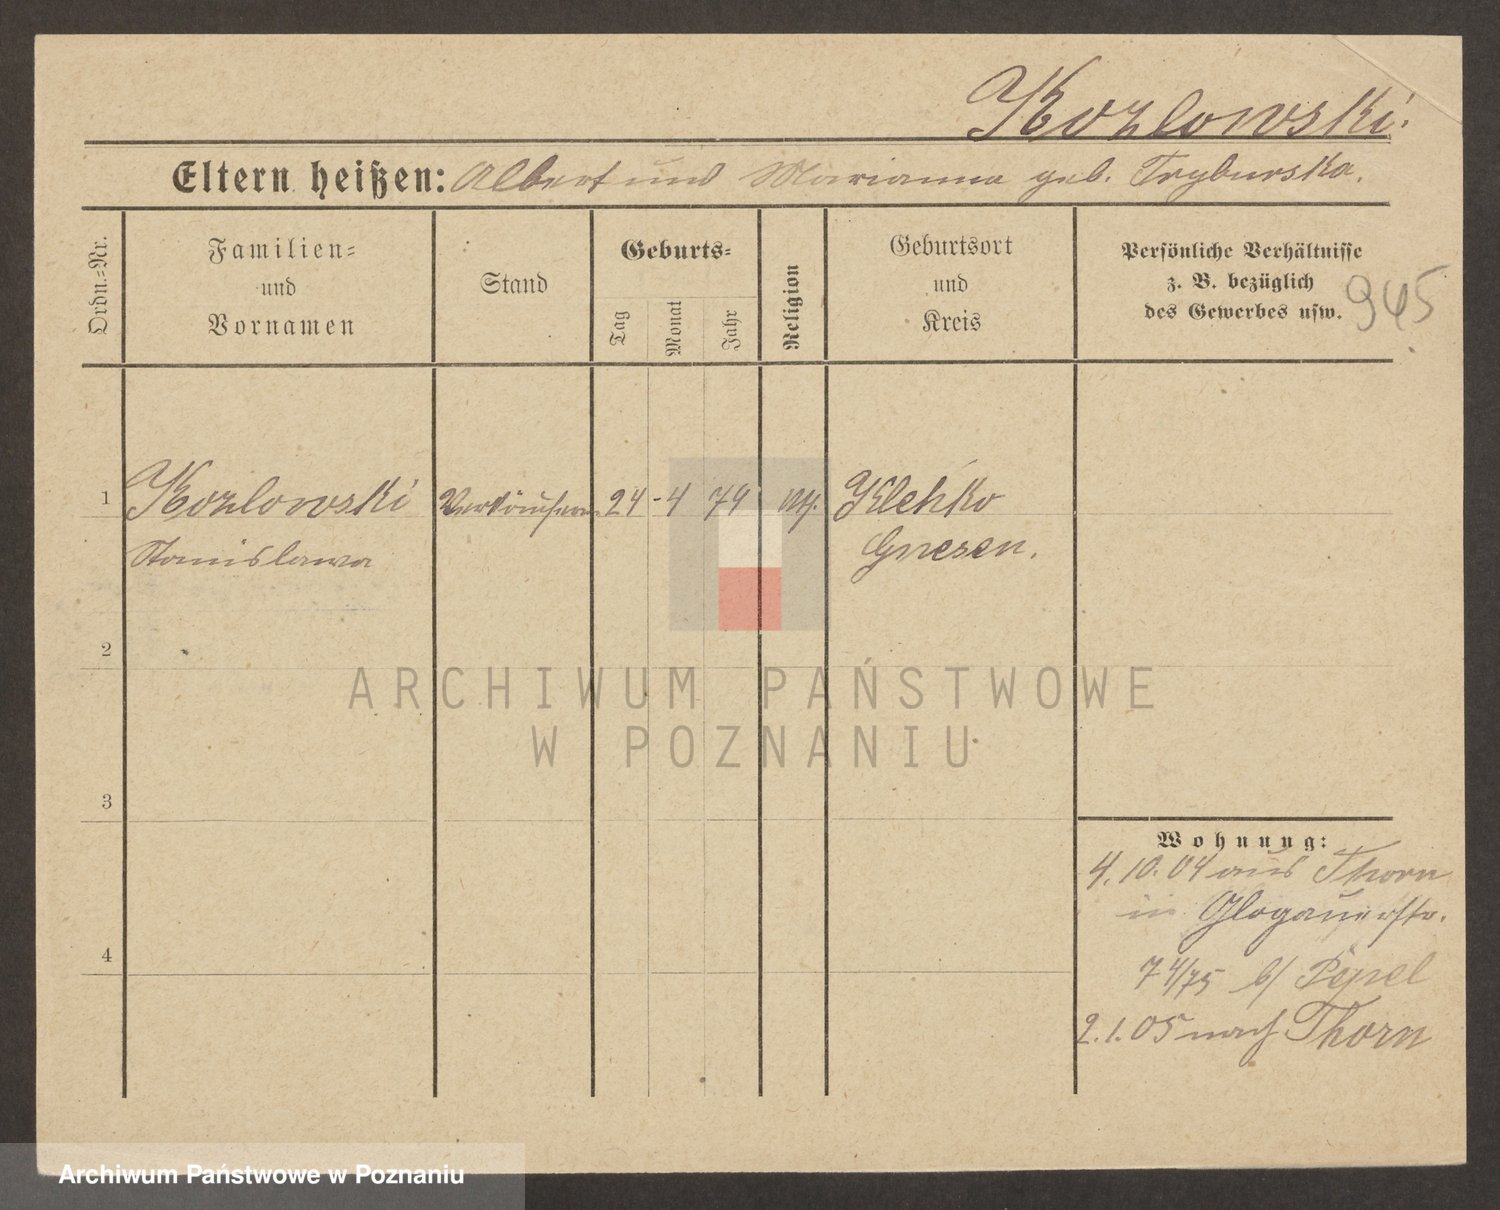 Kozlowski.
Eltern heißen: Albert und Marianna geb. Tryburska.
Ordn.=Nr.
Familien= und Vornamen
Stand
Geburts=
Tag
Monat
Jahr
Religion
Geburtsort und Kreis
Persönliche Verhältnisse
z. B. bezüglich
des Gewerbes usw.
945
1 Kozlowski Verkäuferin 24 - 4 74 Kletzko
Stanislawa Gnesen.
2
3
4
Wohnung:
4.10.04 aus Thorn
in Glogauerstr.
74/75 b/
2.1.05 nach Thorn
ARCHIWUM PAŃSTWOWE
W POZNANIU
Archiwum Państwowe w Poznaniu